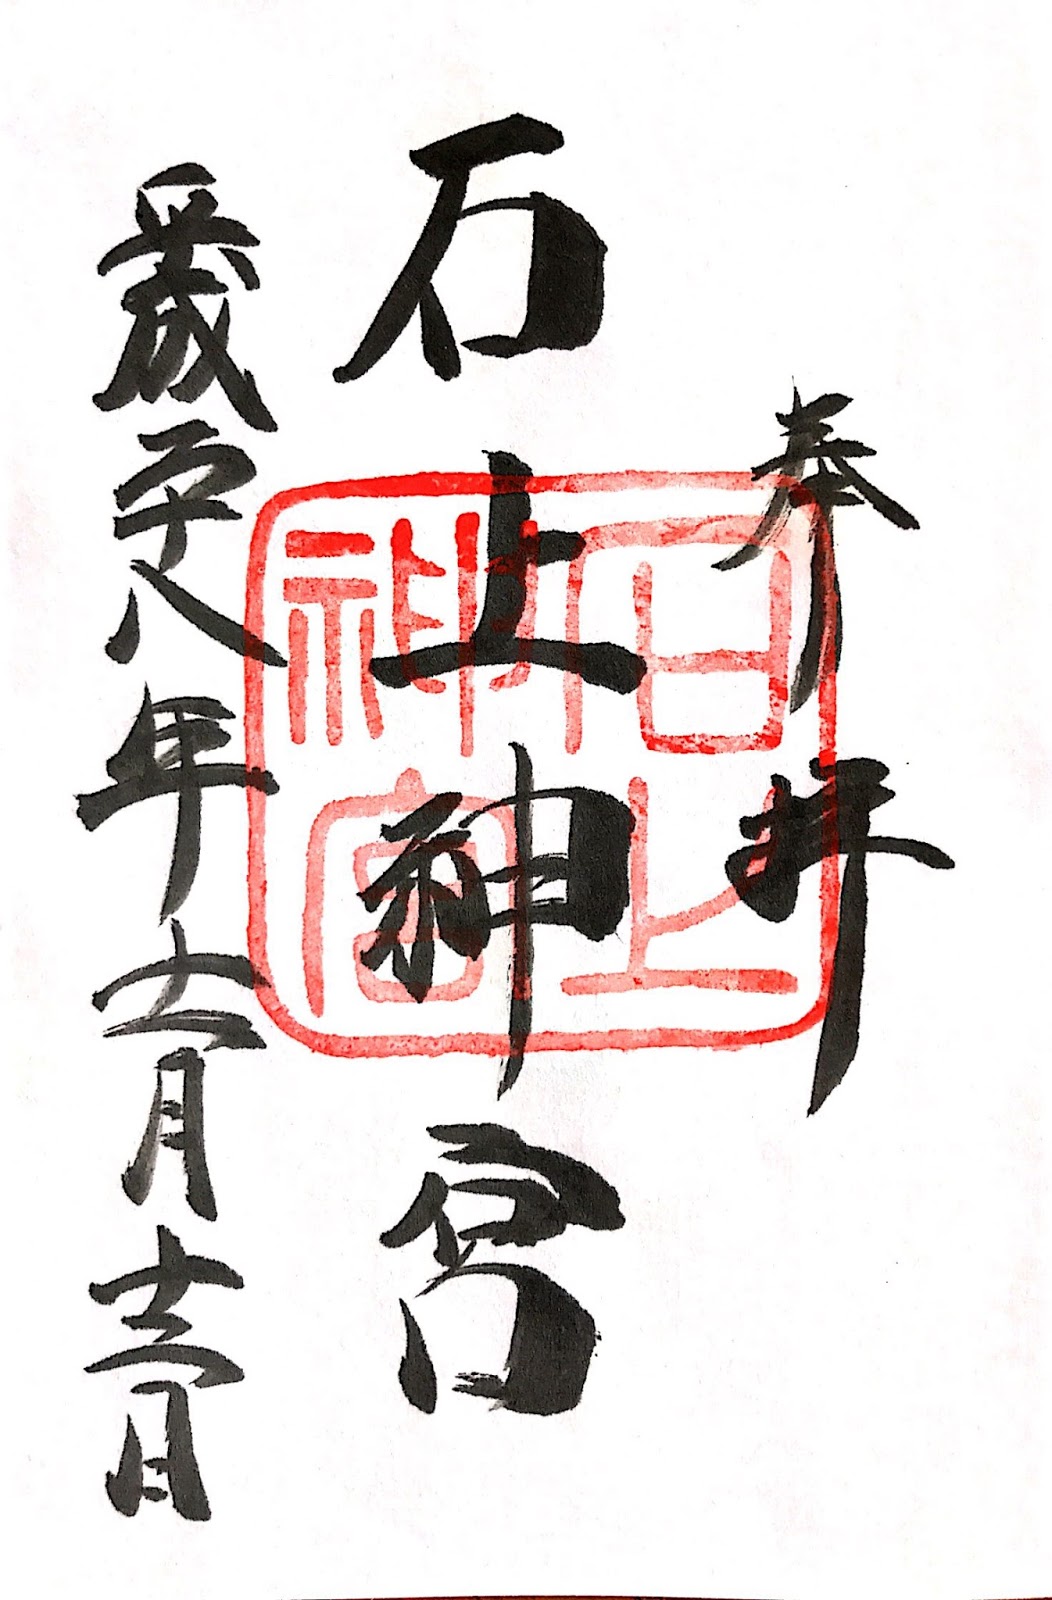 奉拝
石上神宮
平成二十八年十二月十三日
石上
神宮